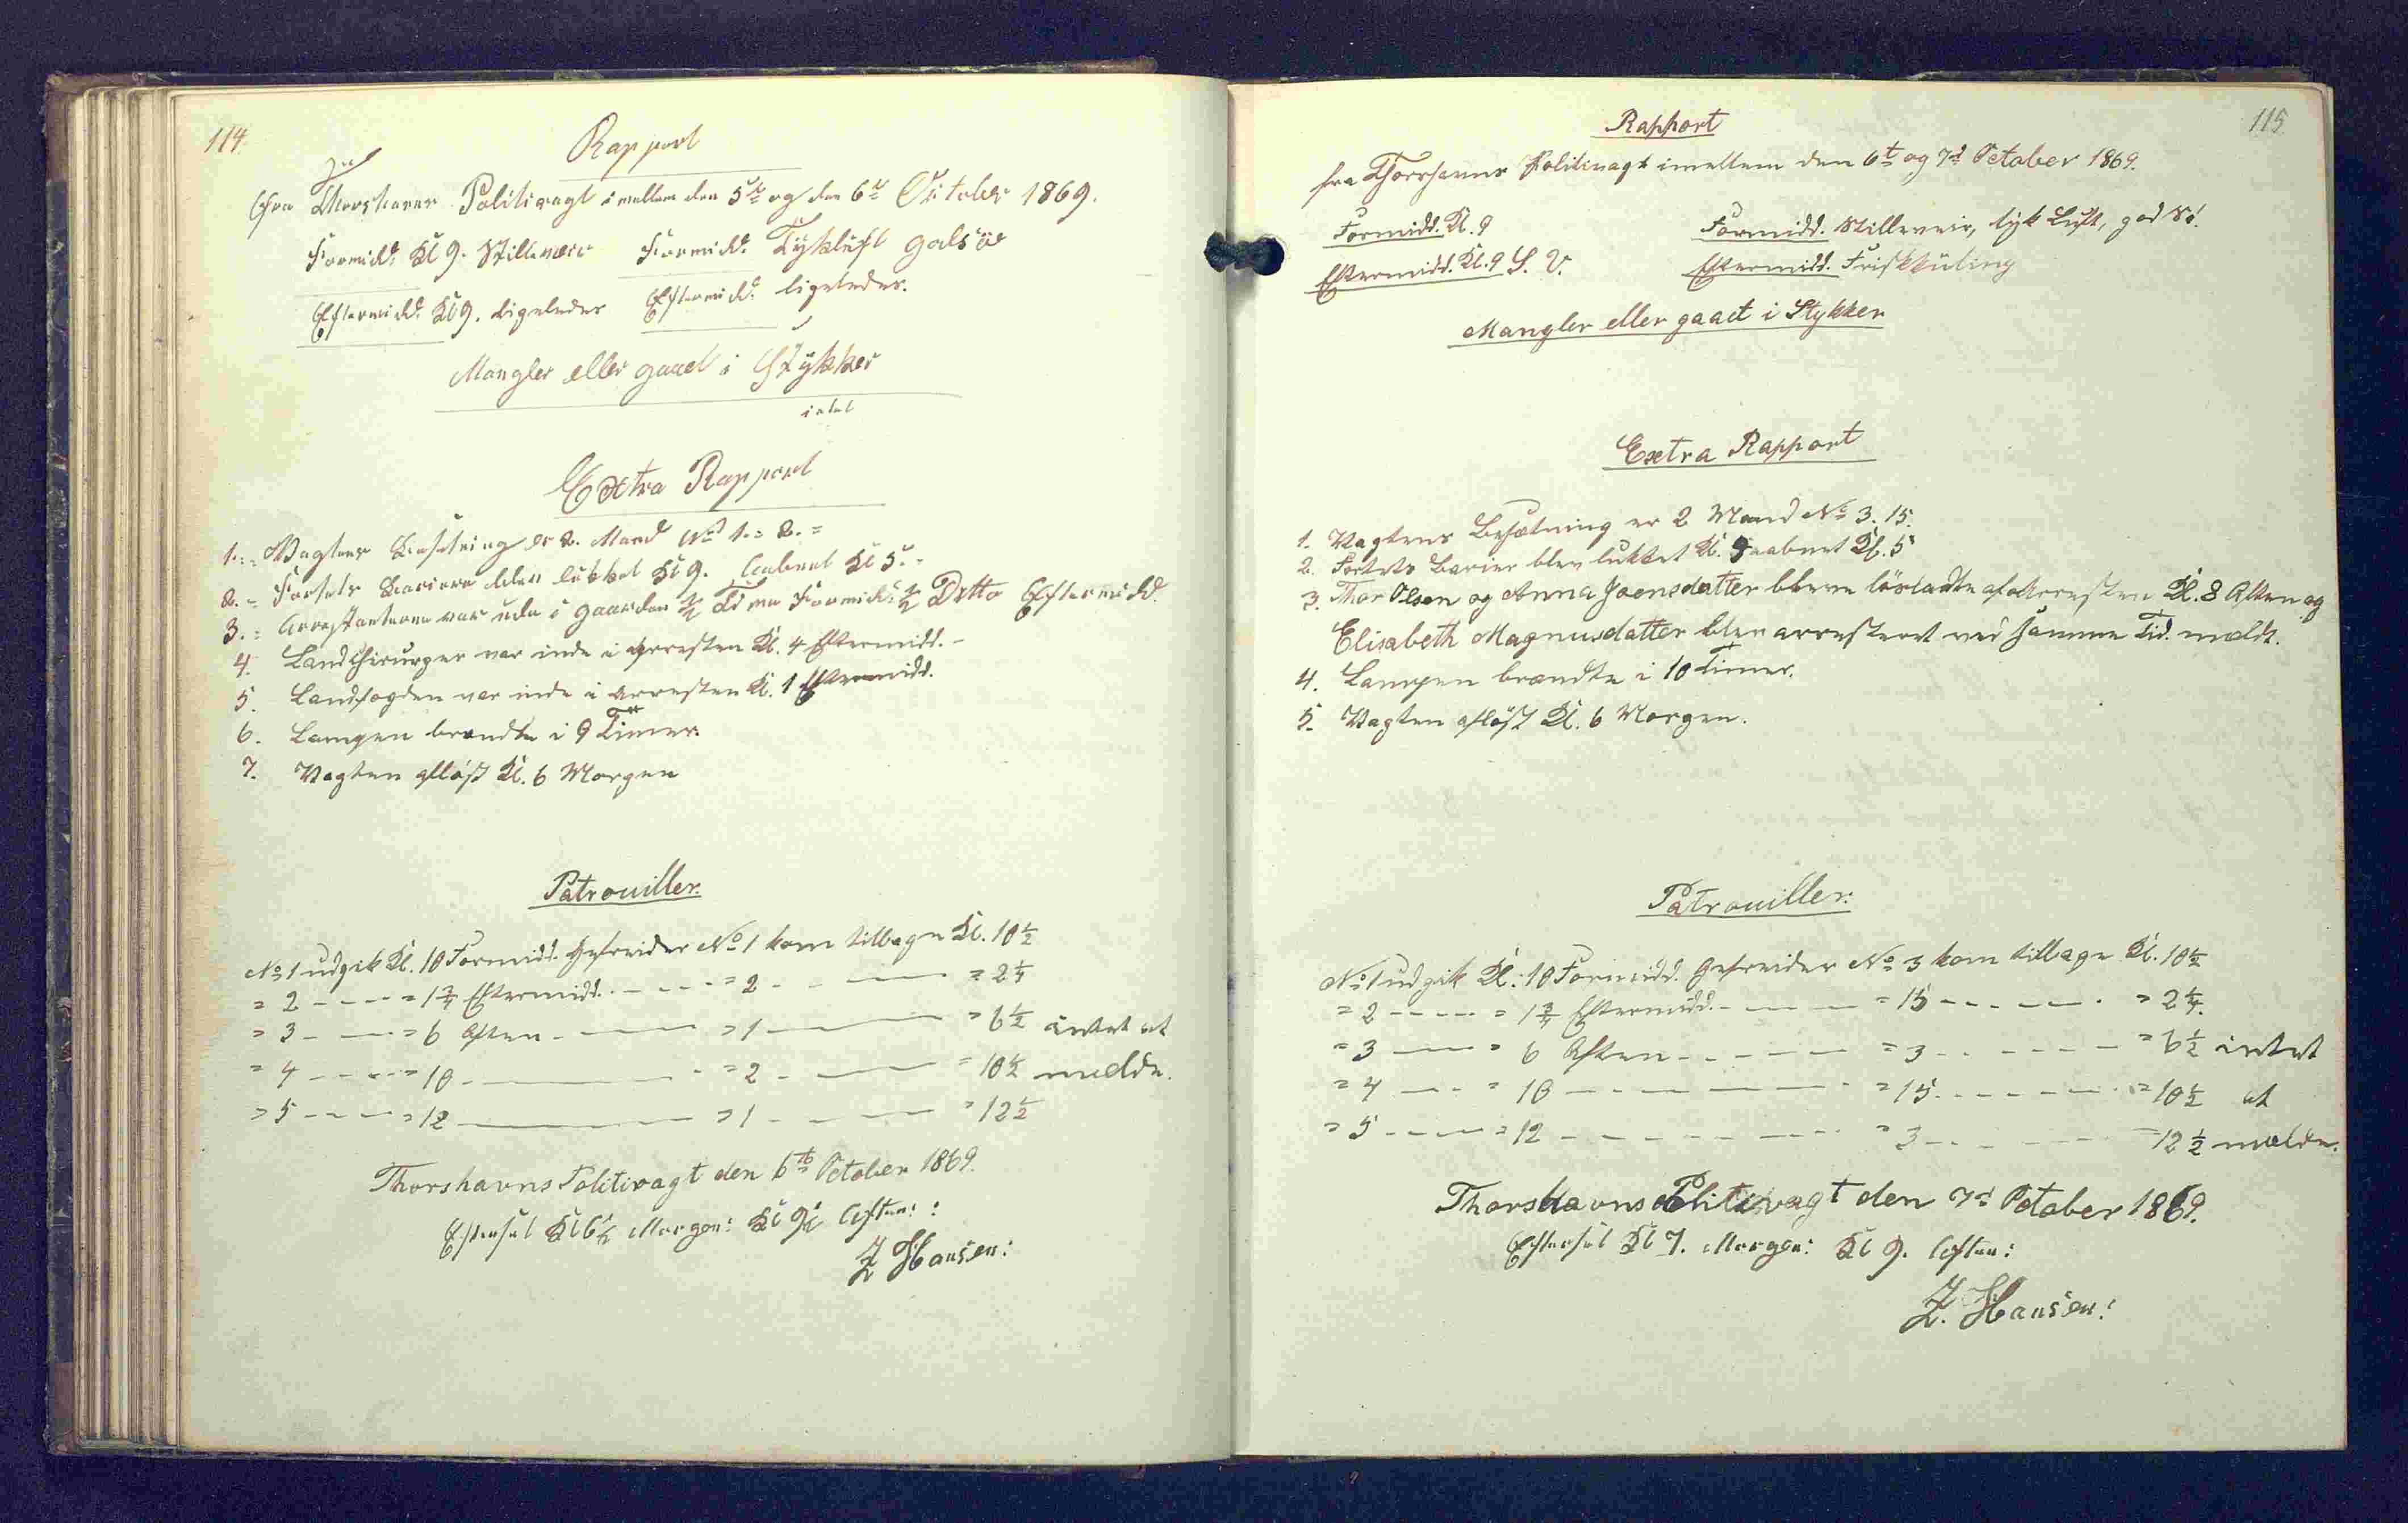 114.
Rapport
fra Thorshavns Politivagt imellem den 5te og den 6te October 1869.
Formidd: Kl 9. Stillevær Formidd: Tÿkluft god Söe
Eftermidd: Kl 9. ligeledes Eftermidd: ligeledes.
Mangler eller gaaet i Stÿkker
intet
Extra Rapport
1. Vagtens Besetning er 2. Mand No 1. 2.
2. Fortets Bariere blev lükket Kl 9. aabnet Kl 5.
3. Arrestanterne var ude i Gaarden ½ Time Formidd: ½ Ditto Eftermidd.
4. Landchirurgen var inde i Arresten Kl. 4 Eftermidd.
5. Landfogden var inde i Arresten Kl. 1 Eftermidd.
6. Lampen brændte i 9 Timer.
7. Vagten afløst Kl. 6 Morgen
Patrouiller.
No 1 udgik Kl. 10 Formidd. Gefreider No 1 kom tilbage Kl. 10½
= 2 - - - - = 1¾ Eftermidd. - - - - = 2 - - — = 2¼
= 3 - - - = 6 Aften - — = 1 — = 6½ intet at
= 4 - - - - = 10 - — - = 2 - — = 10½ melde.
= 5 - - - - = 12 — = 1 - - — = 12½
Thorshavns Politivagt den 6te October 1869.
Eftersat Kl 6½ Morgen: Kl 9½ Aften:
Z Hansen:
115.
Rapport
fra Thorshavns Politivagt imellem den 6t og 7d October 1869.
Formidd. Kl. 9 Formidd. Stilleveir, tyk Luft, god Sö!
Eftermidd. Kl. 9 S. V. Eftermidd. Frisk kuling
Mangler eller gaaet i Stykker
Extra Rapport
1. Vagtens Besætning er 2 Mand No 3. 15.
2. Fortets Barier blev lukket Kl. 9 aabnet Kl. 5
3. Thor Olsen og Anna Joensdatter bleve løsladte af Arresten Kl. 8 Aften og
Elisabeth Magnusdatter blev arresteret ved samme Tid. meldt.
4. Lampen brændte i 10 Timer.
5. Vagten afløst Kl. 6 Morgen.
Patrouiller:
No 1 udgik Kl. 10 Formidd. Gefreider No 3 kom tilbage Kl. 10½
= 2 - - - - = 1¾ Eftermidd. - — — = 15 - - - - — = 2¼.
= 3 — = 6 Aften - - - - — = 3 - - - - — = 6½ intet
= 4 — - - = 10 — - — — = 15 - - - - — = 10½ at
= 5 - - - - = 12 - - - - — - = 3 - - - — = 12½ melde.
Thorshavns Politivagt den 7d October 1869.
Eftersat Kl 7. Morgen: Kl 9. Aften:
Z. Hansen: